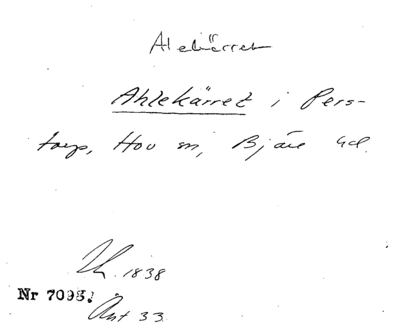 Alekärret
Ahlekärret i Pers-
torp, Hov sn, Bjäre hd.
1838
Nr 7093.
Ant 33